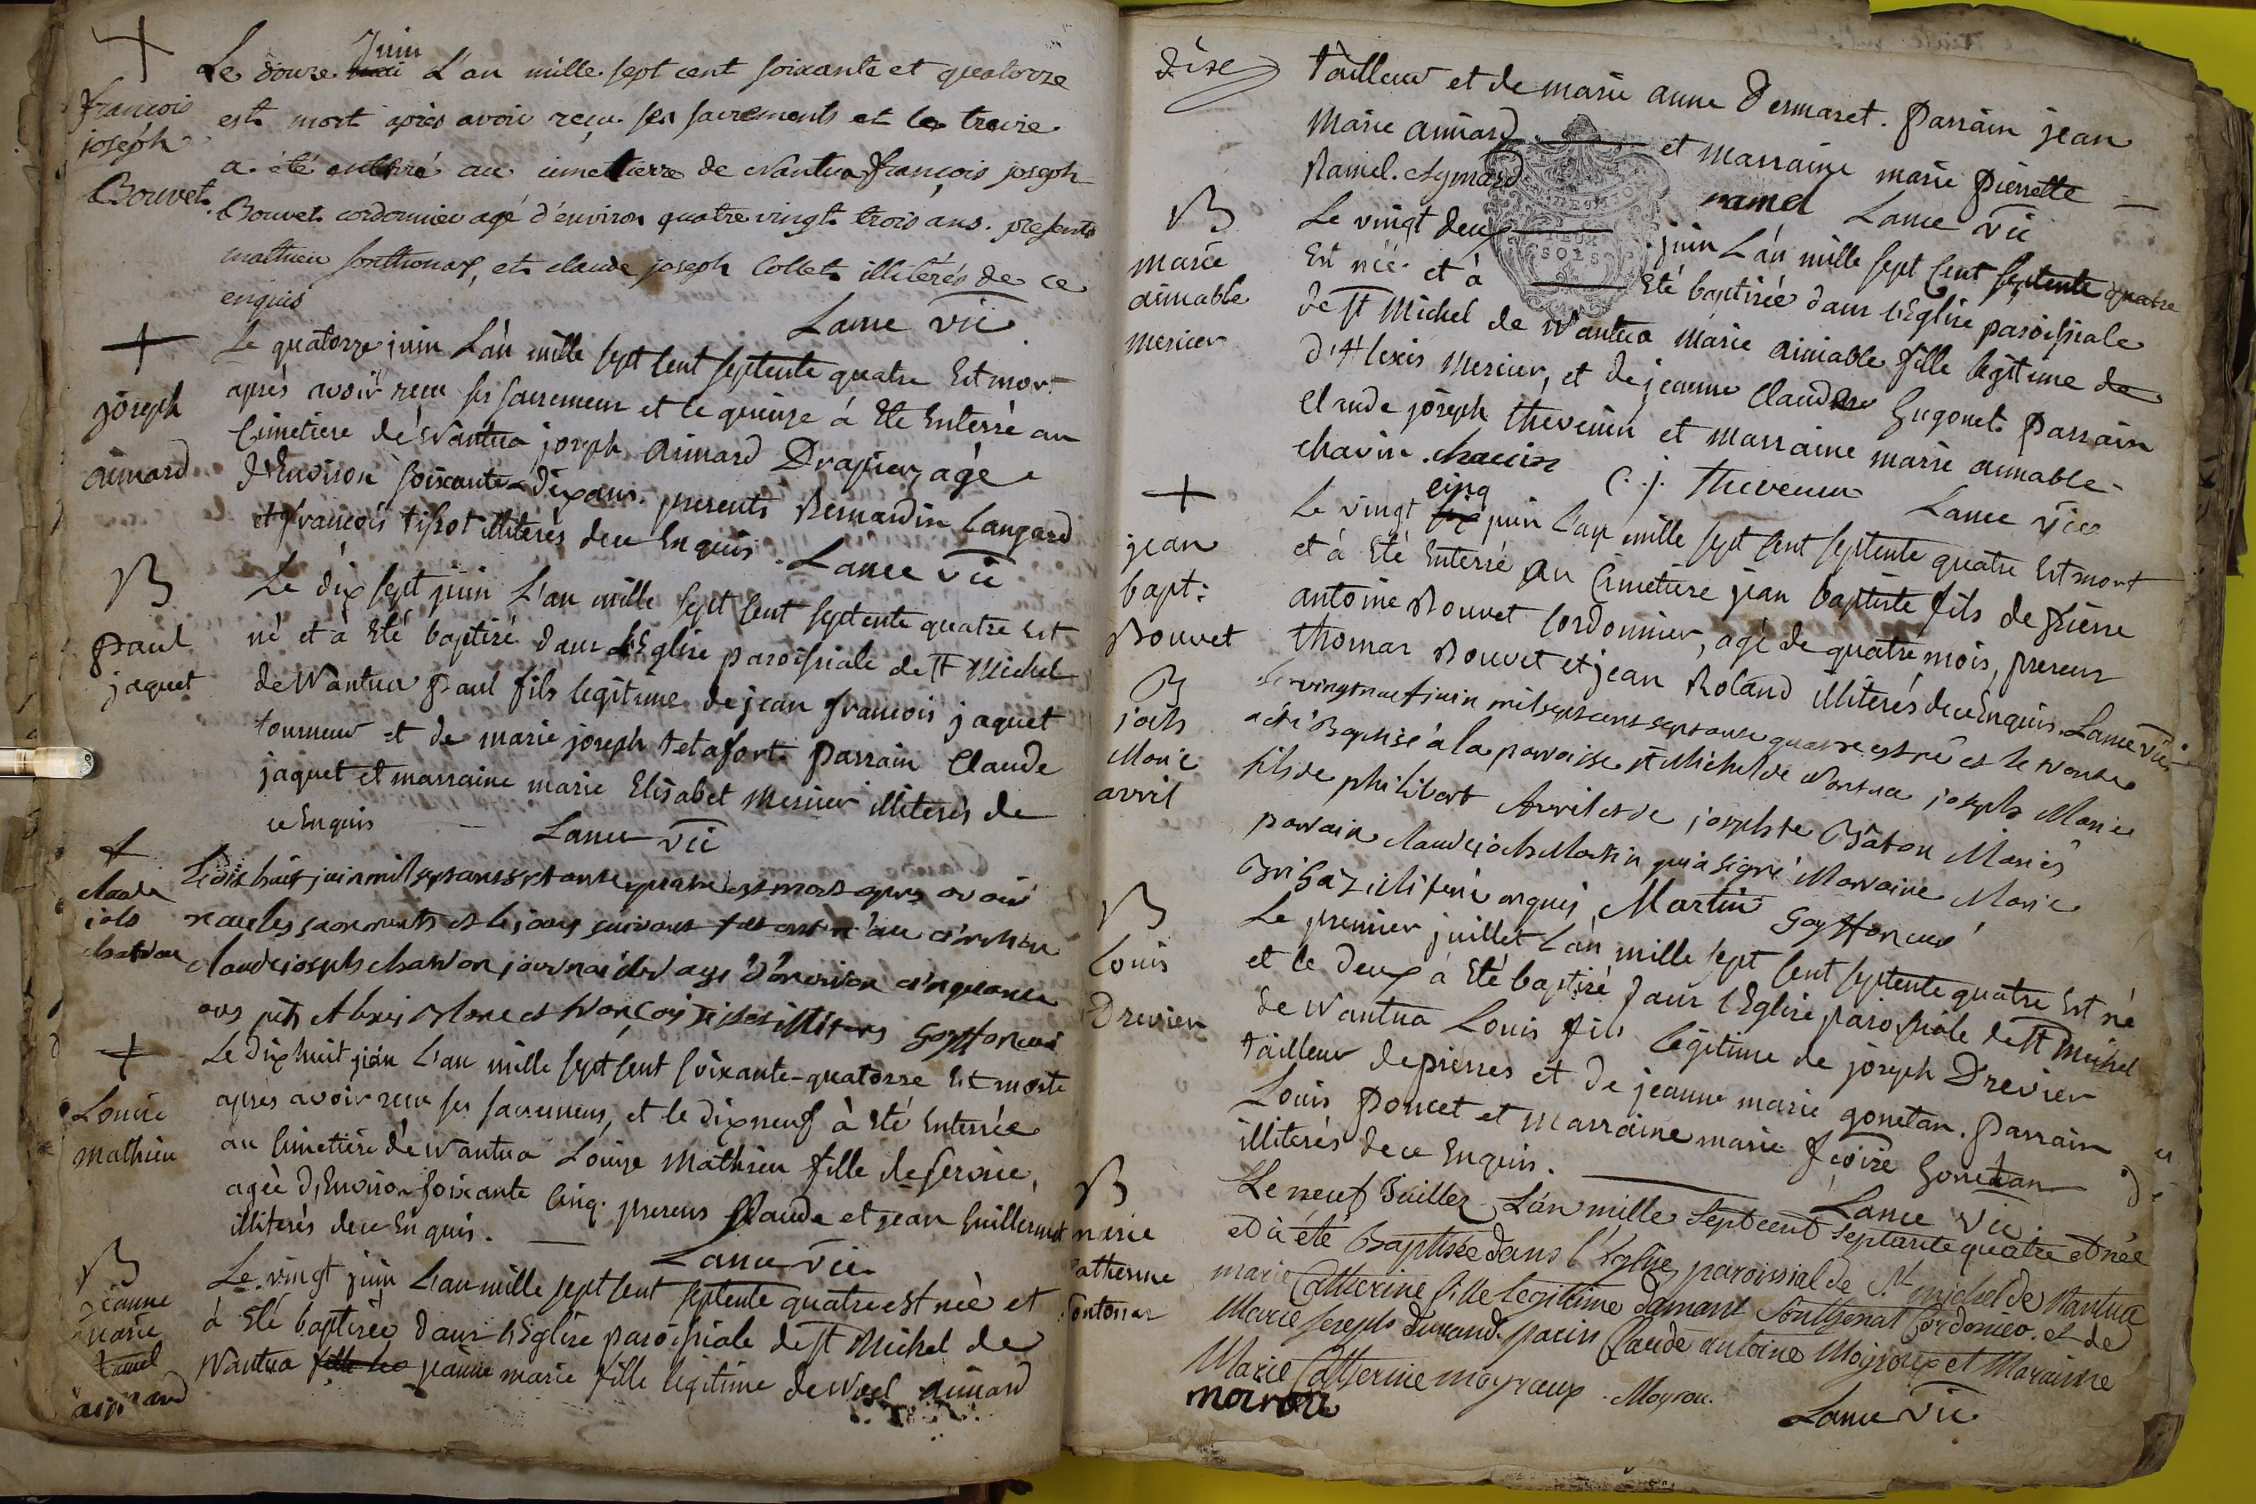 Le douze Juin L'an mille sept cent soixante et quatorze
est mort après avoir reçu ses sacrements et le treize
a été enterré au cimetierre de Nantua françois joseph
Bouvet cordonnier agé d'environ quatre vingt trois ans. presents
mathieu sonthonax, et claude joseph Collet illiterés de ce
enquis
Lame vic
françois
joseph
Bouvet
Le quatorze juin L'an mille sept Cent septente quatre Est mort
après avoir reçu ses sacremens et le quinze à Eté Enterré au
Cimetiere de Nantua joseph aimard Drapier, agé
d'Environ soixante-dix ans. presents Bernardin Langard
et françois tissot illiterés de ce Enquis. Lame vic
joseph
aimard
Le dix sept juin L'an mille sept Cent septente quatre Est
né et à Eté baptisé dans L'Eglise paroissiale de st Michel
de Nantua paul fils legitime de jean francois jaquet
tourneur et de marie joseph tetafort. parrain Claude
jaquet et marraine marie Elisabet mercier illiterés de
ce Enquis Lame vic
B
paul
jaquet
Le dix huit juin mil sept cent septante quatre est mort apres avoir
recu les sacrements et le jour suivant
claude joseph journalier agé d'environ cinquante
ans Alexis et françois tissot illiteres
Claude
Le dix huit juin L'an mille sept Cent soixante-quatorze Est morte
après avoir reçu ses sacremens, et le dix neuf à Eté Enterrée
au Cimetière de Nantua Louise Mathieu fille de service,
agée d'Environ soixante Cinq. presens Claude et jean Guillermet
illiterés de ce Enquis.
Lame vic
Louise
Mathieu
Le vingt juin L'an mille sept Cent septente quatre est née et
à Eté baptisée dans L'Eglise paroissiale de st Michel de
Nantua jeanne marie fille legitime de Noel aimard
B
jeanne
marie
aimard
tailleur et de marie anne Desmaret. parrain jean
Marie aimard et marraine marie pierrette
Ramel. Aymard ramel Lame vic
DEUX
SOLS
Le vingt deux juin L'an mille sept Cent septente quatre
Est née et à Eté baptisée dans l'Eglise paroissiale
de st Michel de Nantua Marie aimable fille legitime
d'Alexis Mercier, et de jeanne Claudine Gugonet parrain
Claude joseph thevenin et marraine marie aimable
chavin. chavin C. j. thevenin Lame vic
B
marie
aimable
mercier
Le vingt cinq juin L'an mille sept Cent septente quatre Est mort
et à Eté Enterré au Cimetiere jean baptiste fils de pierre
antoine Bouvet Cordonnier, agé de quatre mois, presens
thomas Bouvet et jean Roland illiterés de ce Enquis. Lame vic
jean
bapt:
Bouvet
Le vingt neuf juin mil sept cent septante quatre est né et le trente
a été Baptisé a la parroisse st Michel de Nantua joseph Marie
fils de philibert Avril et de josephte Bâton Mariés
parrain claude Martin qui a signé Marraine Marie
illiteré enquis Martin
B
Marie
avril
Le premier juillet L'an mille sept Cent septente quatre Est né
et le deux à Eté baptisé dans l'Eglise paroissiale de st Michel
de Nantua Louis fils legitime de joseph Drevier
tailleur de pierres et de jeanne marie gonetan. parrain
Louis poncet et marraine marie Gonetan
illiterés de ce Enquis. Lame vic
B
Louis
Drevier
Le neuf Juillet L'an mille sept cent septante quatre est née
et à été Baptisée dans l'Eglise paroissial de St michel de Nantua
marie Catherine fille legitime damant Sonthonat Cordonier et de
Marie Joseph durand. parin Claude antoine Moyroux et Maraine
Marie Catherine moyroux. Moyrou.
Lame vic
B
marie
Catherine